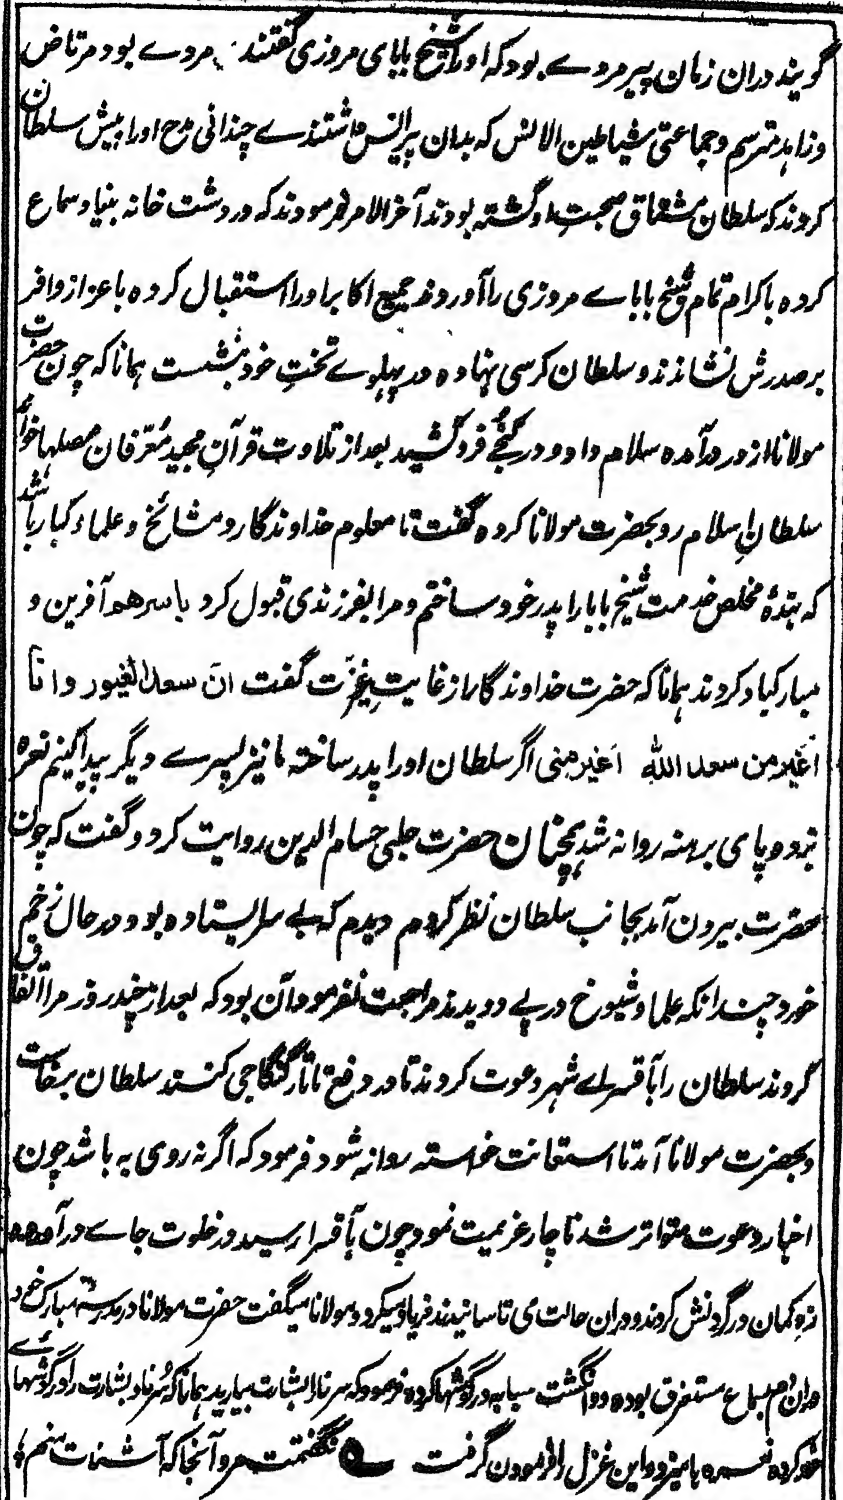 گویند دران زمان پیر مردے بود که اورا شیخ بابای مروزی گفتندے مردے بود مرتاض
و زاهد مترسم و جماعتی شیاطین الانس که بدان پیر انس داشتندے چندانی مدح اورا پیش سلطان
کردند که سلطان مشتاق صحبت او گشته بودند آخر الامر فرمودند که در دشت خانه بنیاد سماع
کرده باکرام تمام شیخ بابا ے مروزی را آوردند جمیع اکابر اورا استقبال کرده باعزاز وافر
بر صدرش نشاندند و سلطان کرسی نهاده در پهلوے تخت خود بنشست همانا که چون حضرت
مولانا از در درآمده سلام داد و در کنجے فروکشید بعد از تلاوت قرآن مجید معرفان فصلها خواندند
سلطان اسلام رو بحضرت مولانا کرده گفت تا معلوم خداوندگار و مشائخ و علماء کبار باشد
که بندهٔ مخلص خدمت شیخ بابا را پدر خود ساختم و مرا بفرزندی قبول کرد باسرهم آفرین و
مبارکباد کردند همانا که حضرت خداوندگار از غایت غیرت گفت ان سعدا لغیور وانا
اغیر من سعد الله اغیر منی اگر سلطان اورا پدر ساخته ما نیز پسرے دیگر پیدا کنیم نعره
بزد و پای برهنه روانه شد همچنان حضرت چلبی حسام الدین روایت کرد و گفت که چون
حضرت بیرون آمد بجانب سلطان نظر کردم دیدم که بے سر ایستاده بود در حال زخم
خورد چندانکه علما و شیوخ در پے دویدند مراجعت نفرمود آن بود که بعد از چند روز مرا اتفاق
کردند سلطان را بآقسراے شهر دعوت کردند تا در دفع تاتار کنکاجی کنند سلطان برخاست
و بحضرت مولانا آمد تا استعانت خواسته روانه شود فرمود که اگر نه روی به باشد چون
اخبار دعوت متواتر شد ناچار عزیمت نمود چون بآقسرا رسید در خلوت جاے در آورده
زه کمان در گردنش کردند و دران حالت که می تاسانیدند فریاد میکرد و مولانا میگفت حضرت مولانا در مدرسهٔ مبارک خود
دران دم بسماع مستغرق بوده دو انگشت سبابه در گوشها کرده فرمود که سرنا و بشارت بیارید همانا که سرنا و بشارت را در گوشهاے
خود کرده نعره ها میزد و این غزل را فرمودن گرفت ے نگفتمت مرو آنجا که آشنات منم